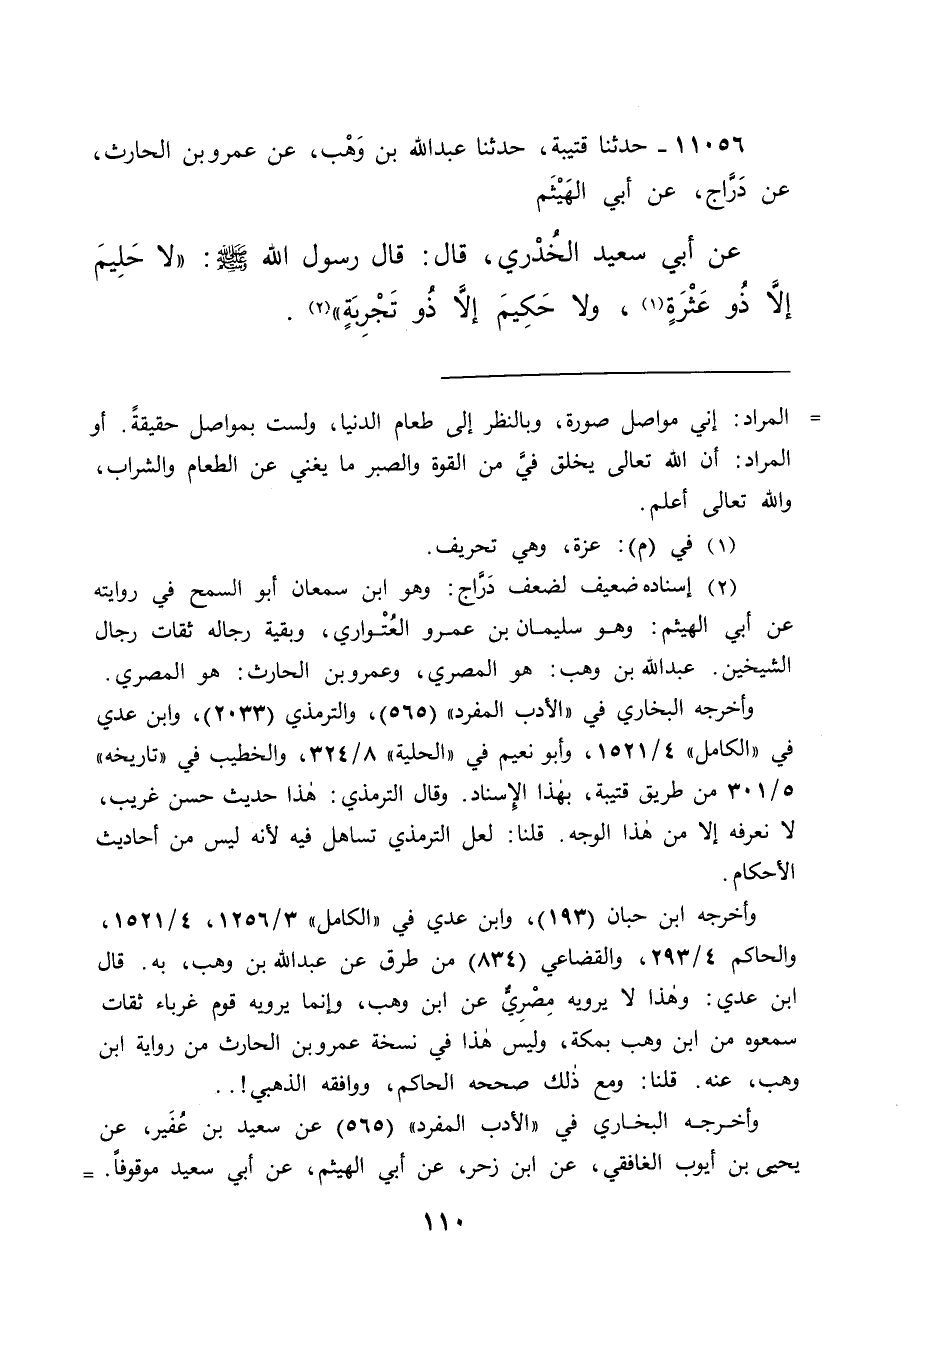 ١١٠٥٦ ـ حدثنا قتيبة، حدثنا عبدالله بن وَهْب، عن عمرو بن الحارث،
عن دَرَّاج، عن أبي الهَيْثَم
عن أبي سعيد الخُدْري، قال: قال رسول الله ﷺ: «لا حَلِيمَ
إلَّا ذُو عَثْرَةٍ(١)، ولا حَكِيمَ إلَّا ذُو تَجْرِبَةٍ»(٢).
= المراد: إني مواصل صورة، وبالنظر إلى طعام الدنيا، ولست بمواصل حقيقةً. أو
المراد: أن الله تعالى يخلق فيَّ من القوة والصبر ما يغني عن الطعام والشراب،
والله تعالى أعلم.
(١) في (م): عزة، وهي تحريف.
(٢) إسناده ضعيف لضعف دَرَّاج: وهو ابن سمعان أبو السمح في روايته
عن أبي الهيثم: وهو سليمان بن عمرو العُتْواري، وبقية رجاله ثقات رجال
الشيخين. عبدالله بن وهب: هو المصري، وعمرو بن الحارث: هو المصري.
وأخرجه البخاري في «الأدب المفرد» (٥٦٥)، والترمذي (٢٠٣٣)، وابن عدي
في «الكامل» ١٥٢١/٤، وأبو نعيم في «الحلية» ٣٢٤/٨، والخطيب في «تاريخه»
٣٠١/٥ من طريق قتيبة، بهٰذا الإسناد. وقال الترمذي: هٰذا حديث حسن غريب،
لا نعرفه إلا من هٰذا الوجه. قلنا: لعل الترمذي تساهل فيه لأنه ليس من أحاديث
الأحكام.
وأخرجه ابن حبان (١٩٣)، وابن عدي في «الكامل» ١٢٥٦/٣، ١٥٢١/٤،
والحاكم ٢٩٣/٤، والقضاعي (٨٣٤) من طرق عن عبدالله بن وهب، به. قال
ابن عدي: وهٰذا لا يرويه مِصْرِيٌّ عن ابن وهب، وإنما يرويه قوم غرباء ثقات
سمعوه من ابن وهب بمكة، وليس هٰذا في نسخة عمرو بن الحارث من رواية ابن
وهب، عنه. قلنا: ومع ذٰلك صححه الحاكم، ووافقه الذهبي!..
وأخرجه البخاري في «الأدب المفرد» (٥٦٥) عن سعيد بن عُفَير، عن
يحيى بن أيوب الغافقي، عن ابن زحر، عن أبي الهيثم، عن أبي سعيد موقوفاً. =
١١٠